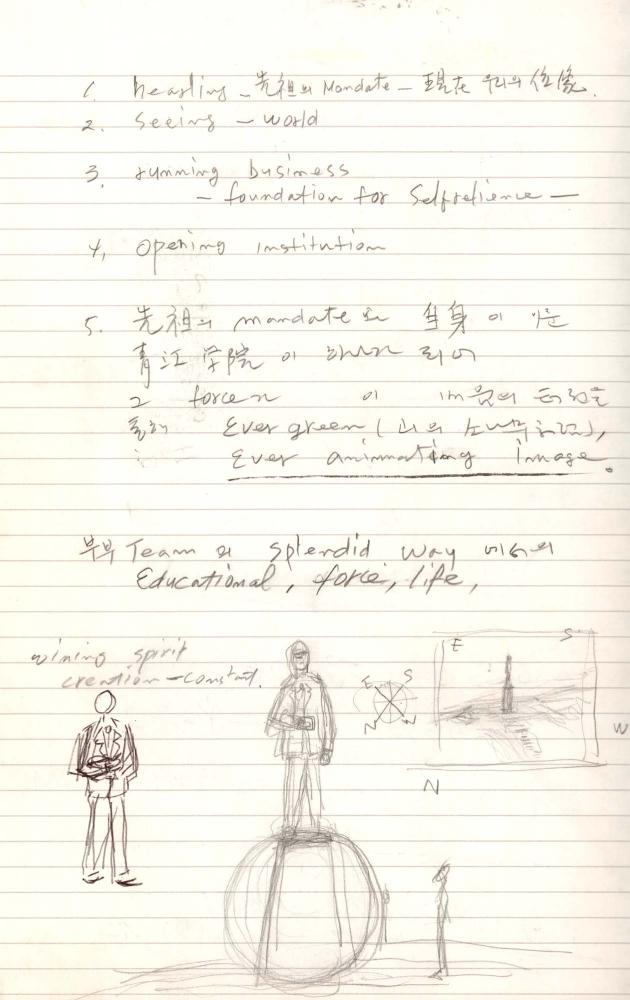 1. hearling - 先祖의 Mandate - 現在 우리의 位像.
2. seeing - world
3. running business
- foundation for Selfrelience -
4, opening institution
5. 先祖의 mandate 와 自身이
青江 学院 이 하나가 되어
그 force가 이
통해 Ever green (山의 소나무),
Ever animmating image.
부부 Team 의 splendid way 에서의
Educational, force, life,
wining spirit
creation - constant.
E S
N W
E S
W
N